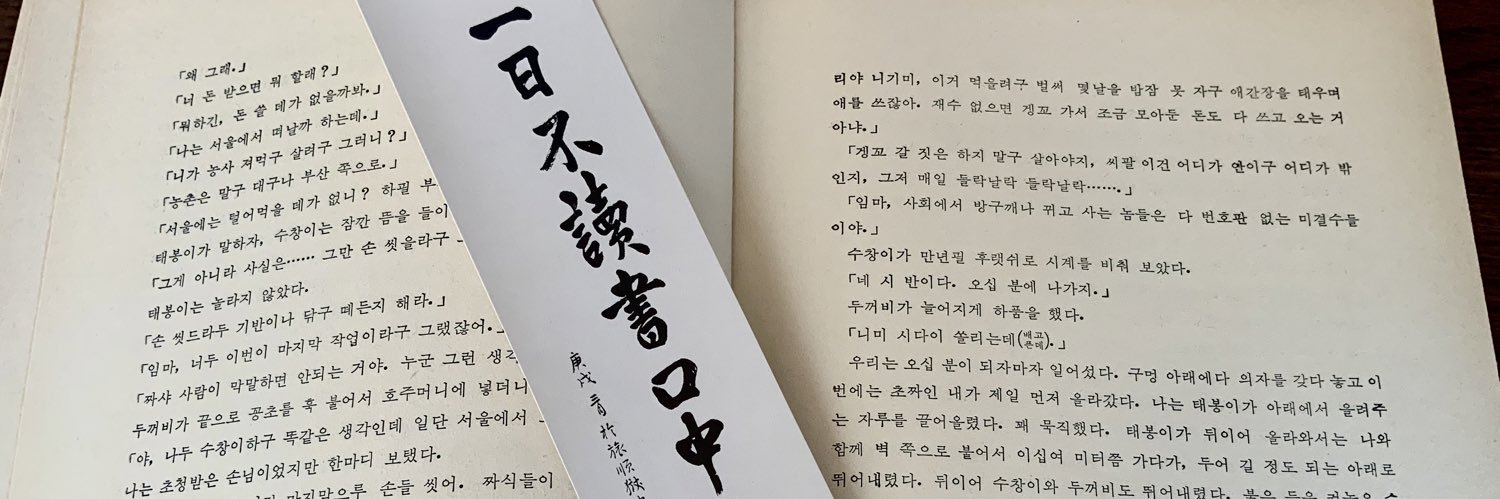 「왜 그래.」
「너 돈 받으면 뭐 할래?」
「뭐하긴, 돈 쓸 데가 없을까봐.」
「나는 서울에서 떠날까 하는데.」
「니가 농사 져먹구 살려구 그러니?」
「농촌은 말구 대구나 부산 쪽으로.」
「서울에는 털어먹을 데가 없니? 하필 부
태봉이가 말하자, 수창이는 잠깐 뜸을 들이
「그게 아니라 사실은…… 그만 손 씻을라구
태봉이는 놀라지 않았다.
「손 씻드라두 기반이나 닦구 떼든지 해라.」
「임마, 너두 이번이 마지막 작업이라구 그랬잖어.」
「짜샤 사람이 막말하면 안되는 거야. 누군 그런 생각
두꺼비가 끝으로 꽁초를 훅 불어서 호주머니에 넣더니
「야, 나두 수창이하구 똑같은 생각인데 일단 서울에서
나는 초청받은 손님이었지만 한마디 보탰다.
마지막으루 손들 씻어. 짜식들이
一日不讀書口中
庚戌 三月 於旅順獄
리야 니기미, 이거 먹을려구 벌써 몇날을 밤잠 못 자구 애간장을 태우며
애를 쓰잖아. 재수 없으면 겡꼬 가서 조금 모아둔 돈도 다 쓰고 오는 거
아냐.」
「겡꼬 갈 짓은 하지 말구 살아야지, 씨팔 이건 어디가 안이구 어디가 밖
인지, 그저 매일 들락날락 들락날락…….」
「임마, 사회에서 방구깨나 뀌고 사는 놈들은 다 번호판 없는 미결수들
이야.」
수창이가 만년필 후랫쉬로 시계를 비춰 보았다.
「네 시 반이다. 오십 분에 나가지.」
두꺼비가 늘어지게 하품을 했다.
「니미 시다이 쏠리는데(배고픈데).」
우리는 오십 분이 되자마자 일어섰다. 구멍 아래에다 의자를 갖다 놓고 이
번에는 초짜인 내가 제일 먼저 올라갔다. 나는 태봉이가 아래에서 올려주
는 자루를 끌어올렸다. 꽤 묵직했다. 태봉이가 뒤이어 올라와서는 나와
함께 벽 쪽으로 붙어서 이십여 미터쯤 가다가, 두어 길 정도 되는 아래로
뛰어내렸다. 뒤이어 수창이와 두꺼비도 뛰어내렸다.